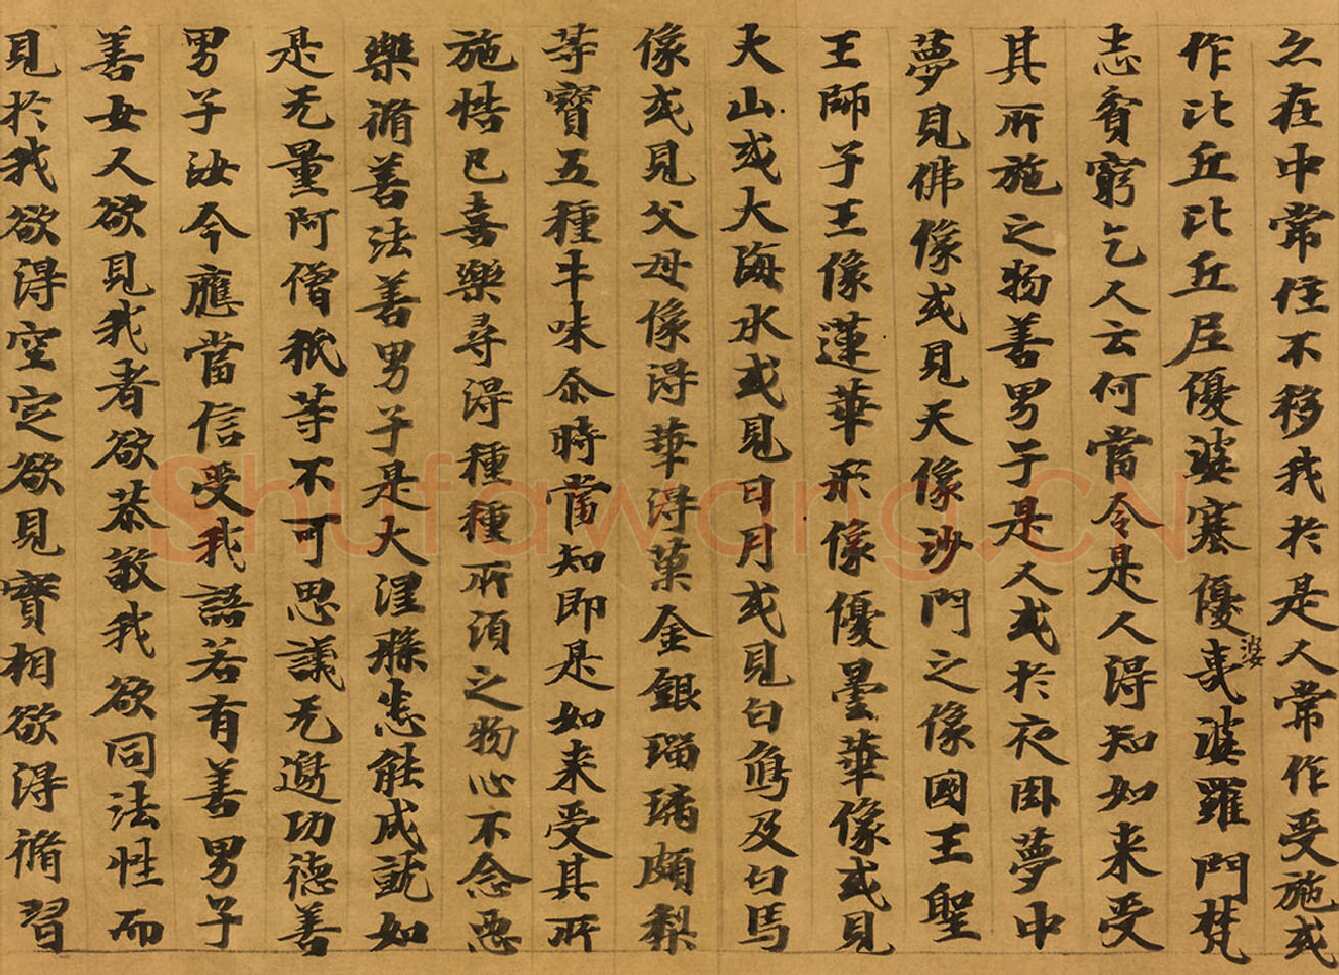 之在中常住不移我於是人常作受施或
作比丘比丘尼優婆塞優婆夷婆羅門梵
志貧窮乞人云何當令是人得知如来受
其所施之物善男子是人或於夜卧夢中
夢見佛像或見天像沙門之像國王聖
王師子王像蓮華形像優曇華像或見
大山或大海水或見日月或見白鳥及白馬
像或見父母像得華得菓金銀瑠璃頗梨
等寶五種牛味尒時當知即是如来受其所
施悟已喜樂尋得種種所須之物心不念惡
樂脩善法善男子是大涅槃悉能成就如
是无量阿僧祇等不可思議无邊功德善
男子汝今應當信受我語若有善男子
善女人欲見我者欲恭敬我欲同法性而
見於我欲得空定欲見實相欲得脩習
Shufawang.CN